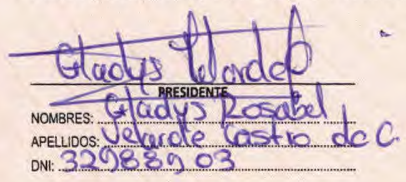 Gladys Velarde
PRESIDENTE
NOMBRES: Gladys Rosabel
APELLIDOS: Velarde Castro de C.
DNI: 32988903